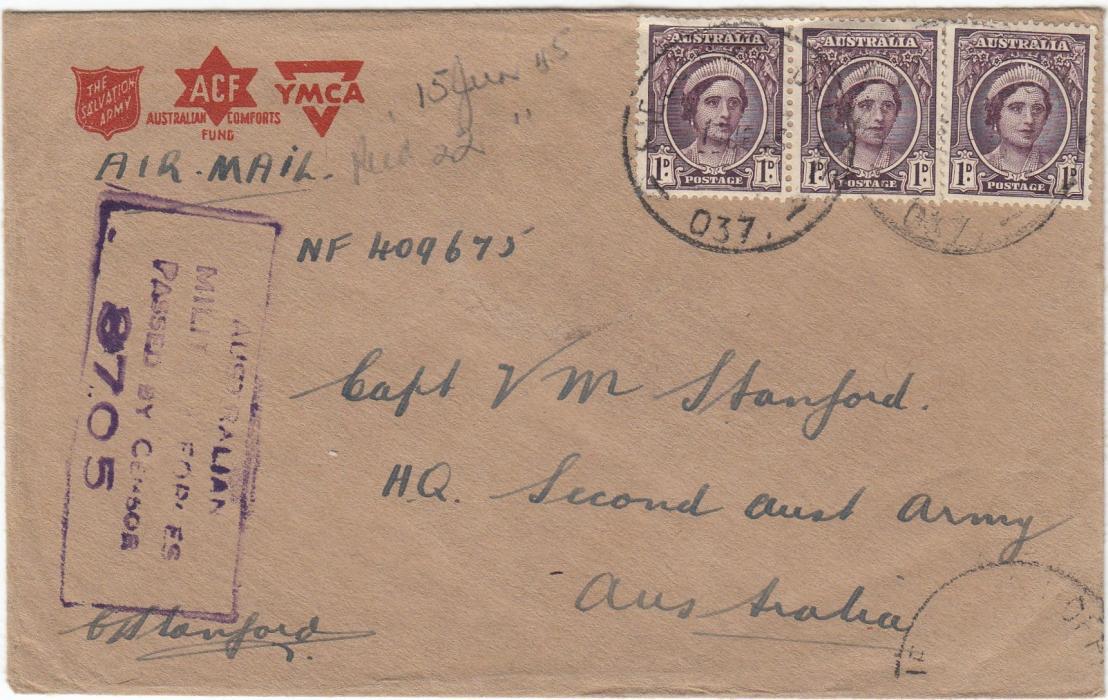 THE SALVATION ARMY
ACF
AUSTRALIAN COMFORTS
FUND
YMCA
15 June 45
Recd 22 "
AIR.MAIL.
NF 409675
AUSTRALIA
1D. POSTAGE 1D.
AUSTRALIA
1D. POSTAGE 1D.
AUSTRALIA
1D. POSTAGE 1D.
037.
037
AUSTRALIAN
MILIT
FORCES
PASSED BY CENSOR
8705
Capt V M Stanford.
H.Q. Second Aust Army
Australia
Stanford